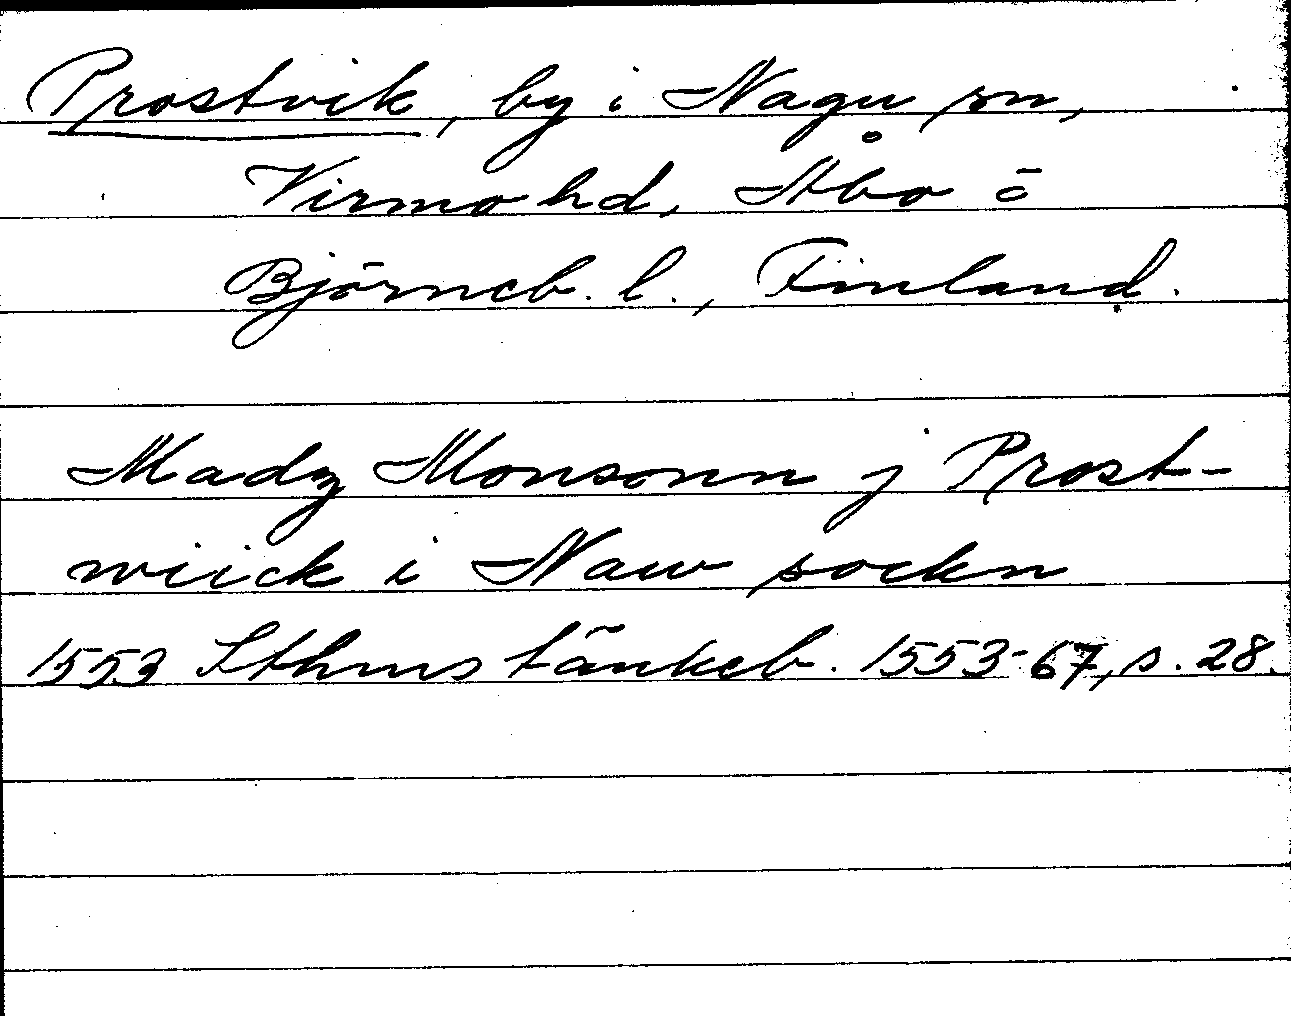 Prostvik, by i Nagu sn,
Virmo hd, Åbo o
Björneb. l., Finland.
Madz Monsonn j Prost-
wiick i Naw sockn
1553 Sthms tänkeb. 1553-67, s. 28.